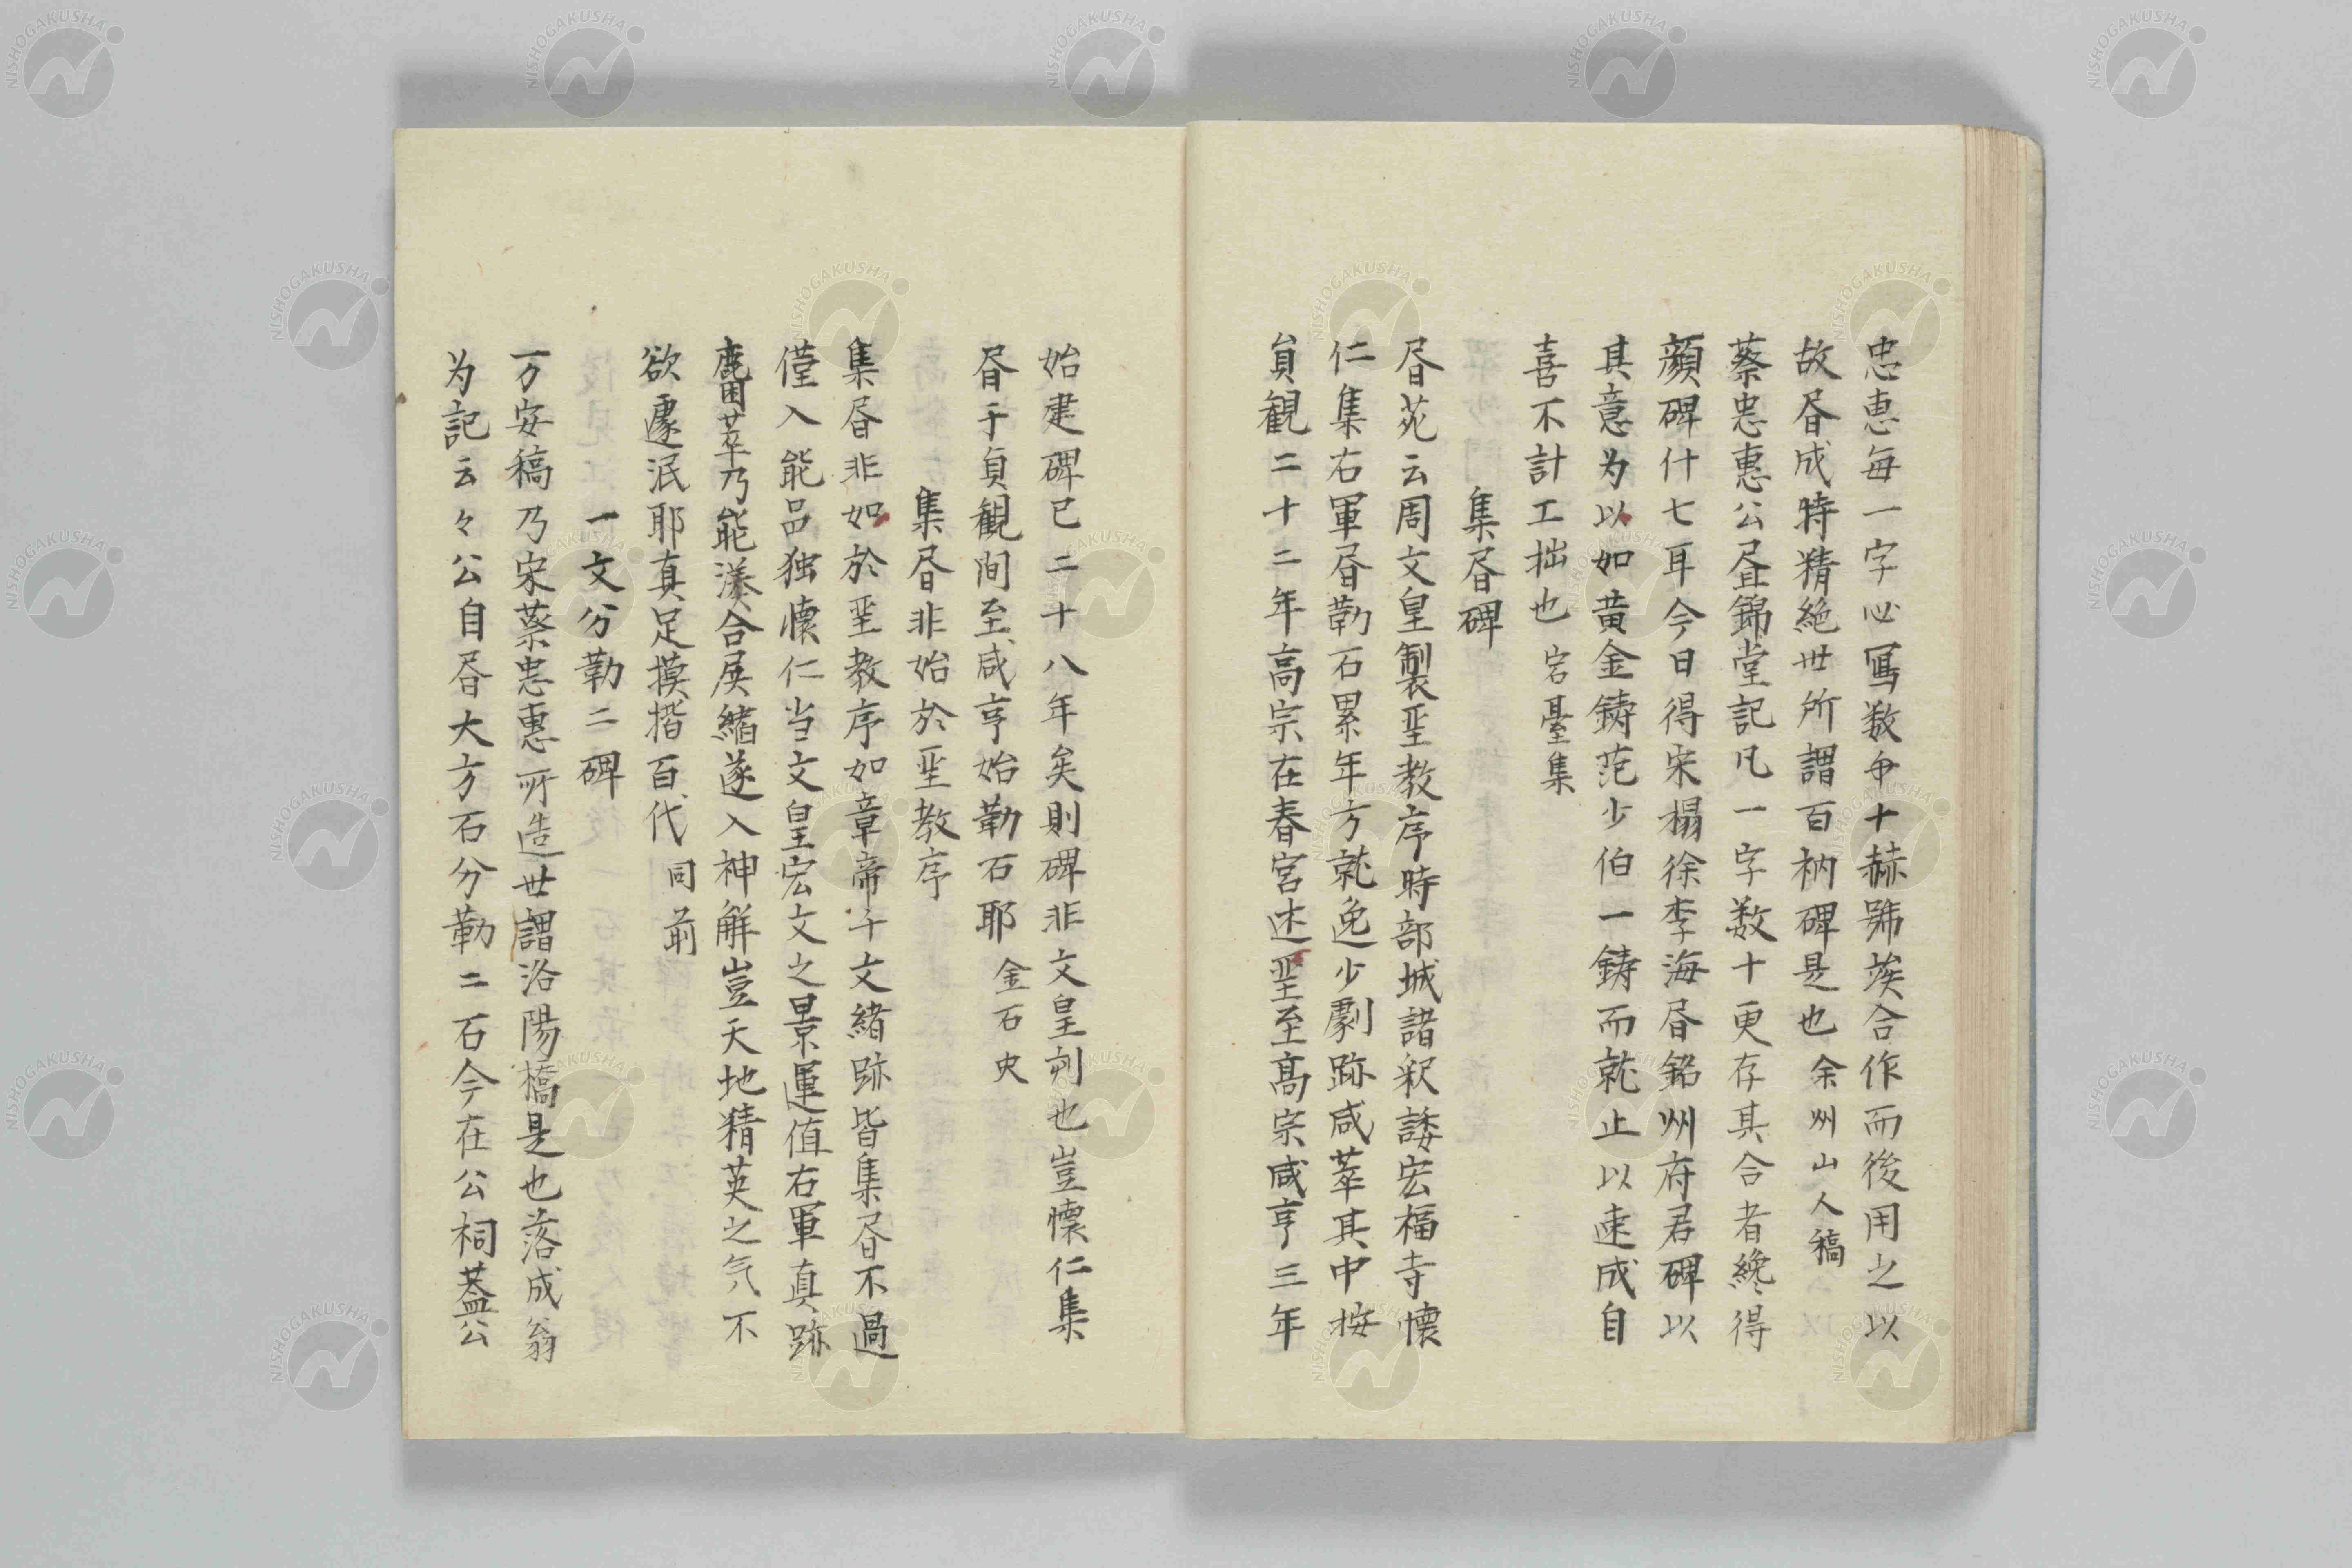 忠惠每一字必寫数十赫號埃合作而後用之以
故昼成時精絶世所謂百衲碑是也 余州山人稿
蔡忠惠公昼錦堂記凡一字数十更存其合者纔得
顔碑什七耳今日得宋榻徐李海昼銘州府君碑以
其意为以如黄金鋳范少伯一鋳而就止以速成自
喜不計工拙也 宕臺集
集昼碑
昼苑云周文皇製聖教序時部城諸釈諉宏福寺懐
仁集右軍昼勒石累年方就逸少劇跡咸萃其中按
貟観二十二年高宗在春宮述聖至髙宗咸亨三年
始建碑已二十八年矣則碑非文皇刻也豈懐仁集
昼于貟観间至咸亨始勒石耶 金石史
集昼非始於聖教序
集昼非如於聖教序如章帝千文緒跡皆集昼不過
僅入能品独懐仁当文皇宏文之景運值右軍真跡
麕萃乃能湊合展縮遂入神解豈天地精英之気不
欲遽泯耶真足摸揩百代 同前
一文分勒二碑
万安稿乃宋蔡忠惠所造世謂洛陽橋是也落成翁
为記云々公自昼大方石分勒二石今在公祠葢公